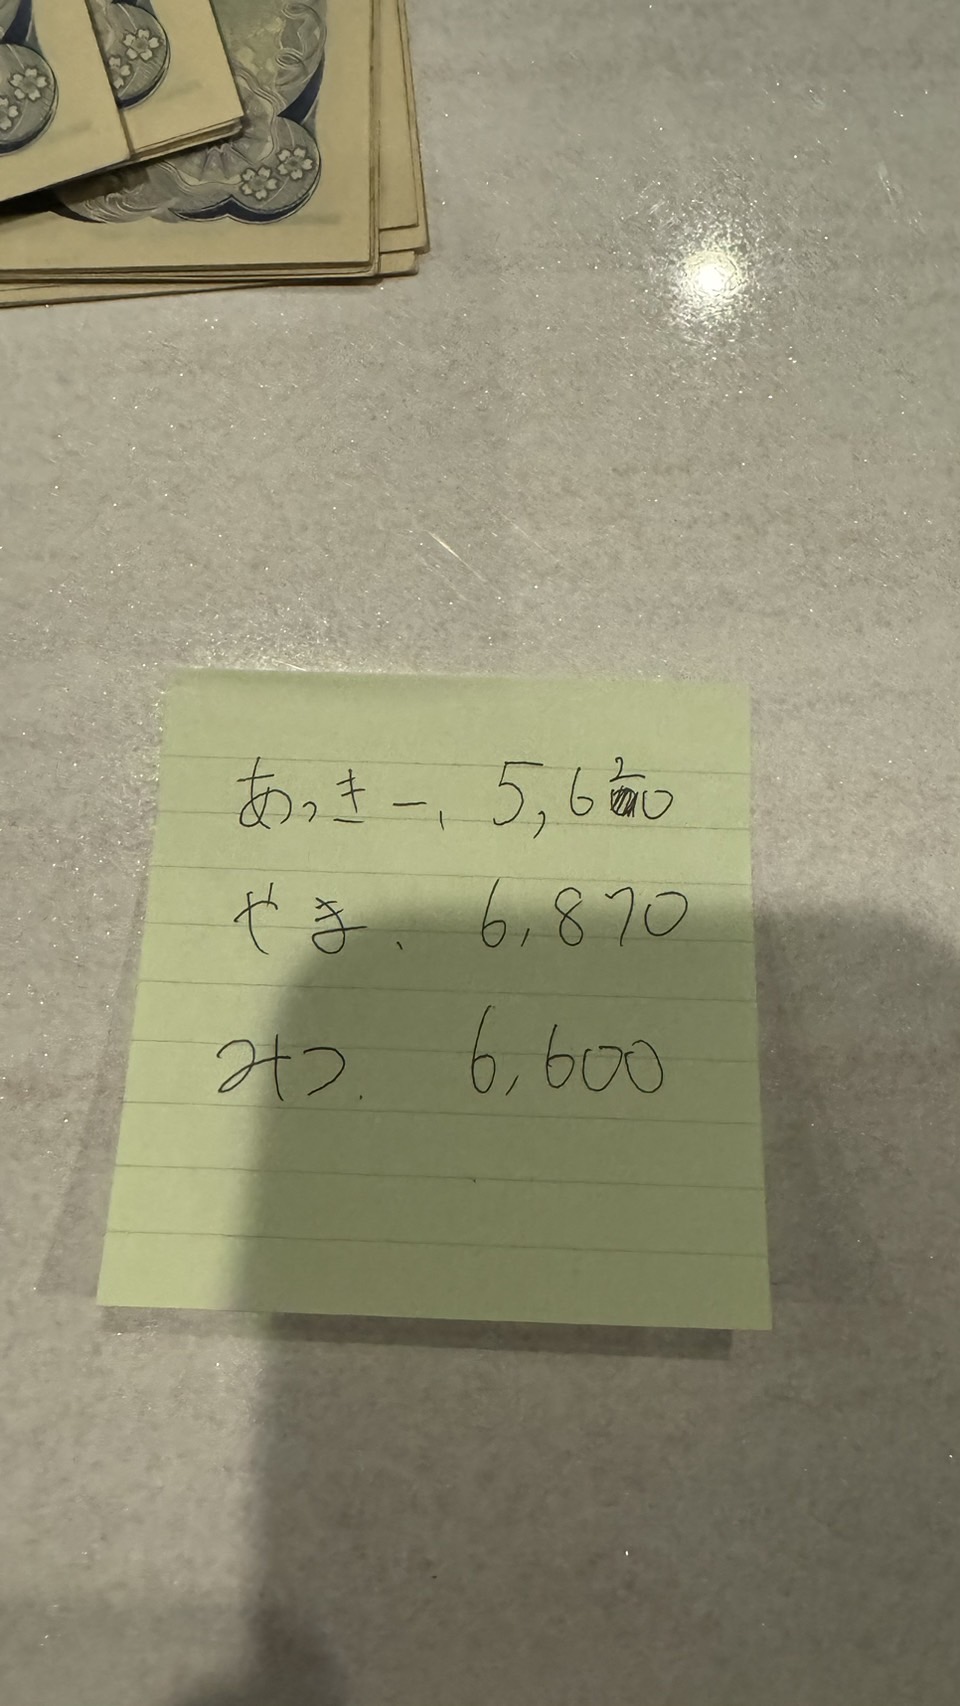 あっきー、5,620
やま、6,870
みつ、6,600